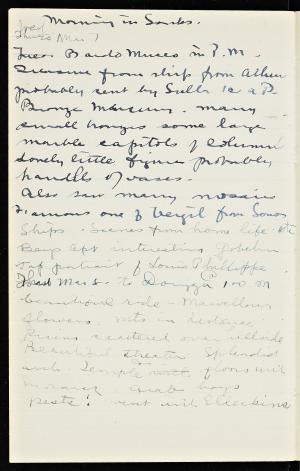 Morning in Souks.
Tues Mar 7
Tues Bardo Museo in P.M.
Treasure from ship from Athens
probably sent by Sulla 1c a
Bronze Museum. many
small bronzes some large
marble capitols & columns
Lovely little figures probably
handles of vases.
Also saw many mosaics
Famous one of Vergil from Sousse
Ships. Scenes from home life
Beys apt interesting Gobelin
portrait of Louis Phillippe
Mar 8. to Dougga 100 m
beautiful ride - Marvellous
flowers. mts in distance
Ruins scattered over hillside
Beautiful theater Splendid
arch. Temple floors with
mosaics. Arab boys
pests! went with